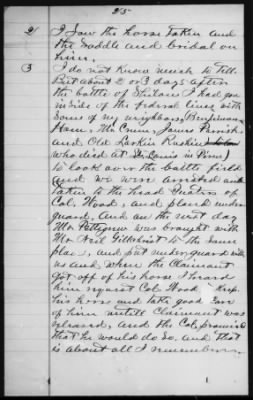 25
2 I Saw the horse taken and
the Saddle and bridal on
him.
3 I do not Know much to tell.
But about 2 or 3 days after
the battle of Shiloh I had gone
inside of the federal lines with
Some of my neighbors, Benjamin
Ham, Wm Crum, James Parrish
and Old Larkin Rushing
who died at St. Louis in Prison)
to look over the battle field
and we were arrested and
taken to the head Quaters of
Col. Wood, and placed under
guard, And on the next day
Mr Pettigrew was brought with
Mr Neil Gilchrist to the Same
place, and put under guard with
us and when the Claimant
got off of his horse I heard
him request Col Wood Keep
his horse and take good care
of him untill Claimant was
released, and the Col. promised
that he would do So. and that
is about all I remember.